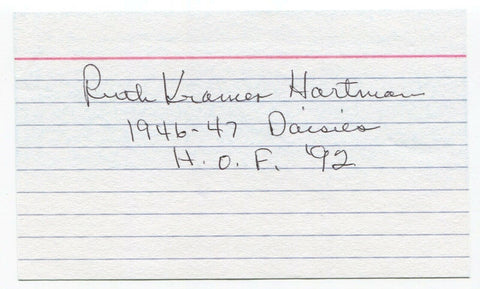 Ruth Kramer Hartman
1946-47 Daisies
H.O.F. '92